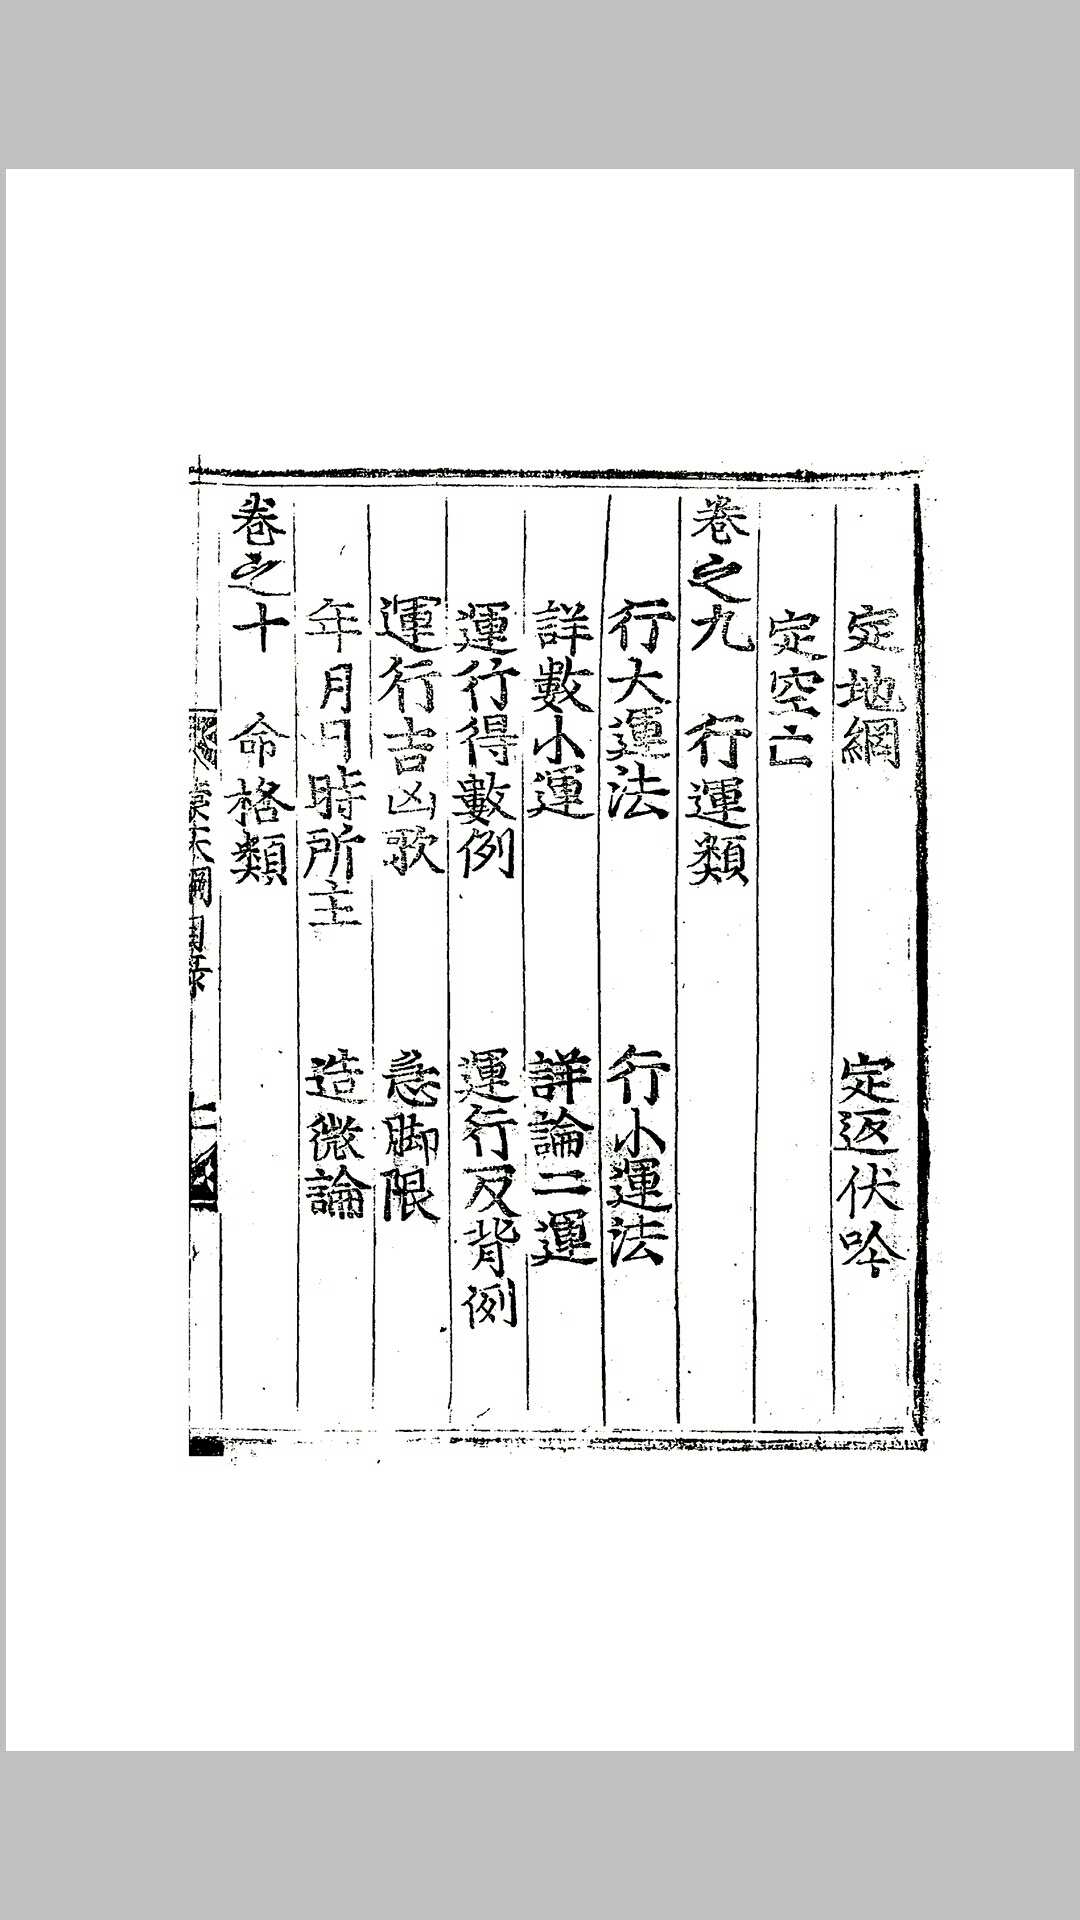 定地網　定返伏吟
定空亡
卷之九　行運類
行大運法　行小運法
詳數小運　詳論二運
運行得數例　運行反背例
運行吉凶歌　急脚限
年月日時所主　造微論
卷之十　命格類
天綱目录